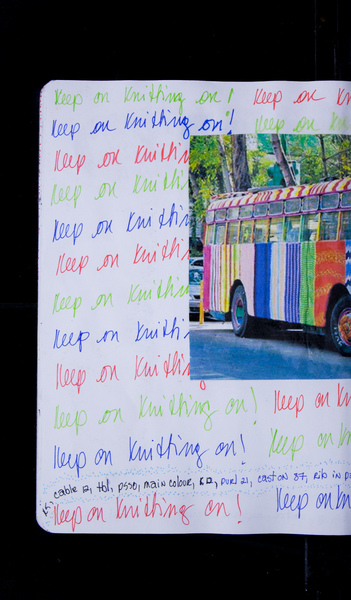 Keep on Knitting on! Keep on Kn
Keep on Knitting on! Keep on Kn
Keep on Knittin
Keep on Knittin
Keep on Knittin
Keep on Knittin
Keep on Knittin
Keep on Knittin
Keep on Knitting
Keep on Knitting on! Keep on Kn
Keep on Knitting on! Keep on Kn
K5, cable 12, tbl, psso, main colour, K2, purl 21, cast on 87, rib in p
Keep on Knitting on! Keep on Kn